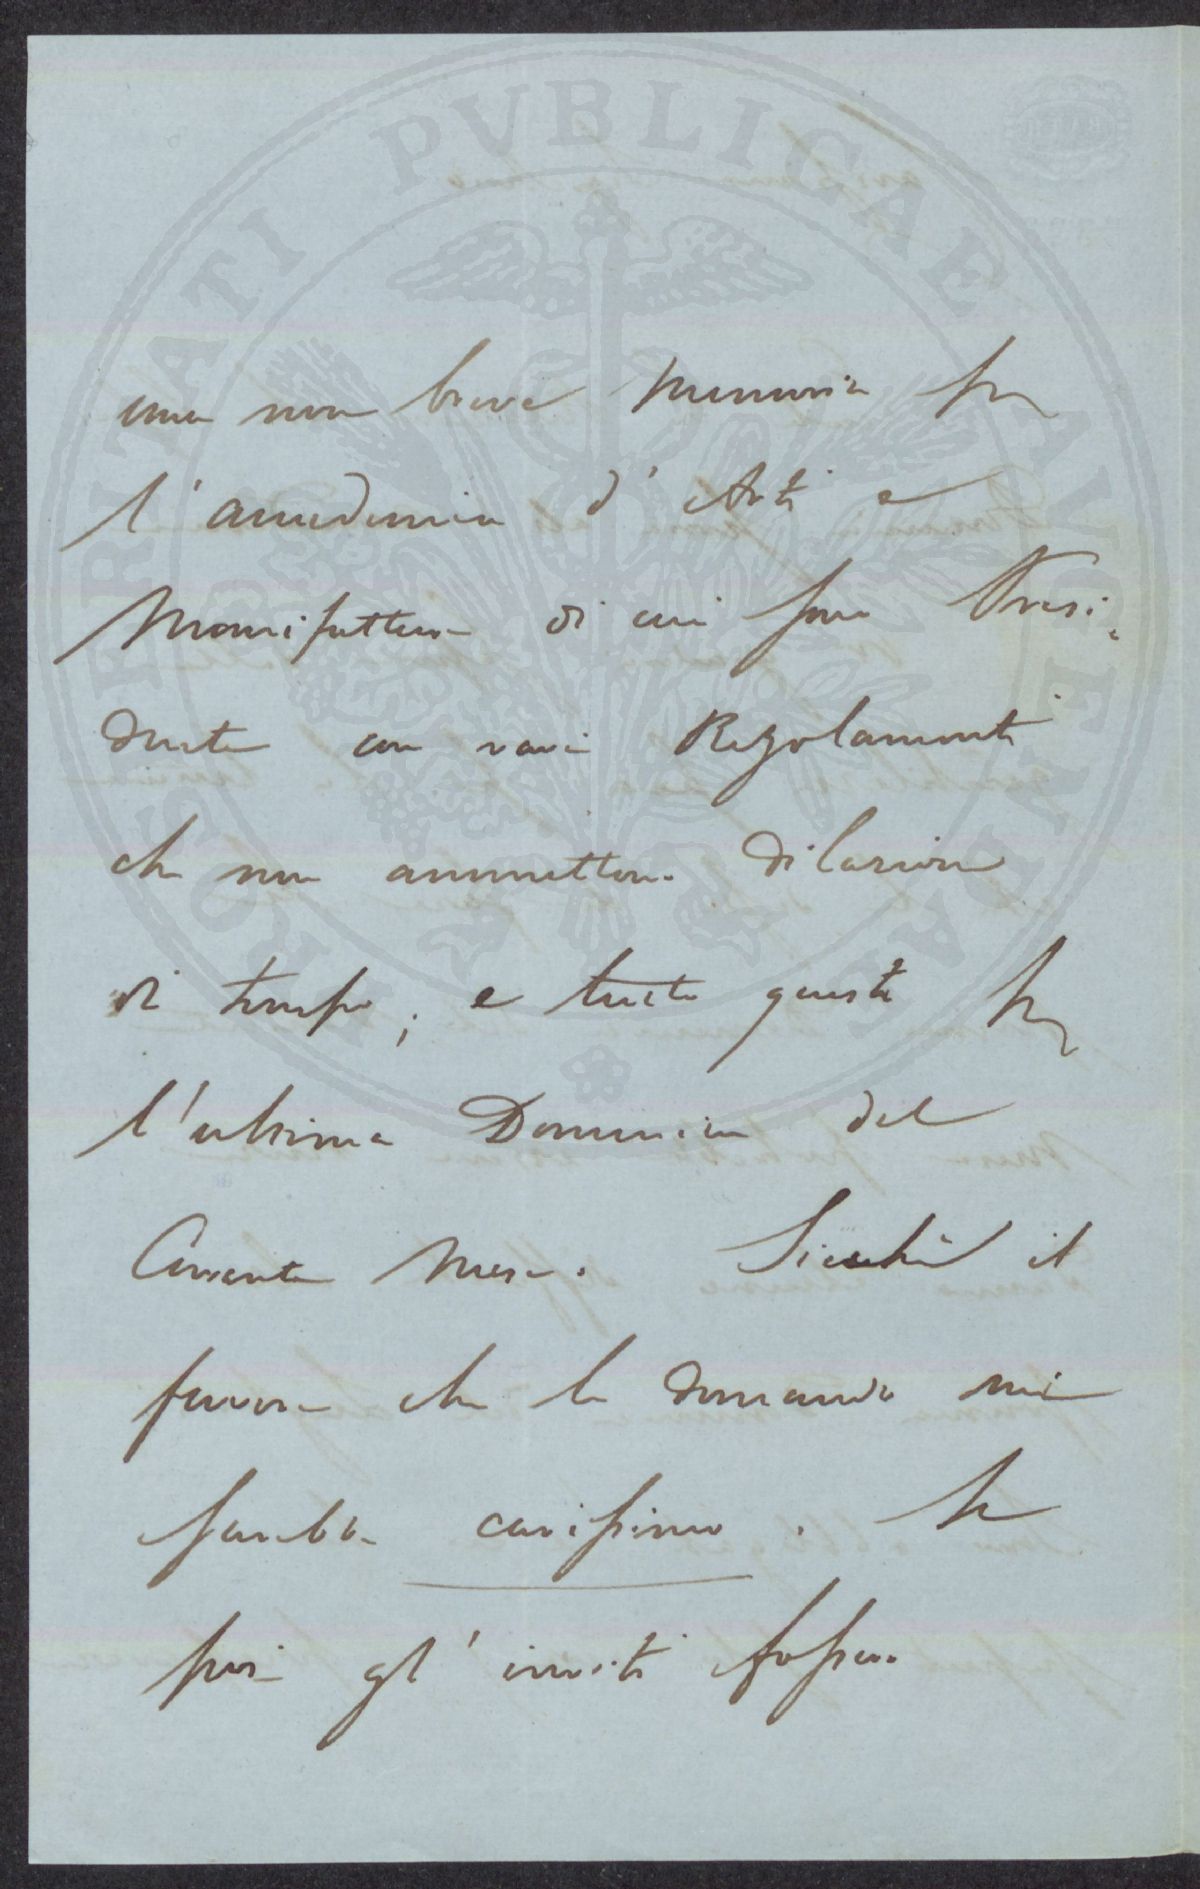 PROSPERITATI PVBLICAE AVGENDAE
una non breve Memoria per
l'accademia d'Arti e
Manifatture di cui sono Presi-
dente con varii Regolamenti
che non ammettono dilazione
di tempo; e tutto questo per
l'ultima Domenica del
Corrente Mese. Sicchè il
favore che le domando mi
sarebbe carissimo. Se
poi gl'inviti fossero